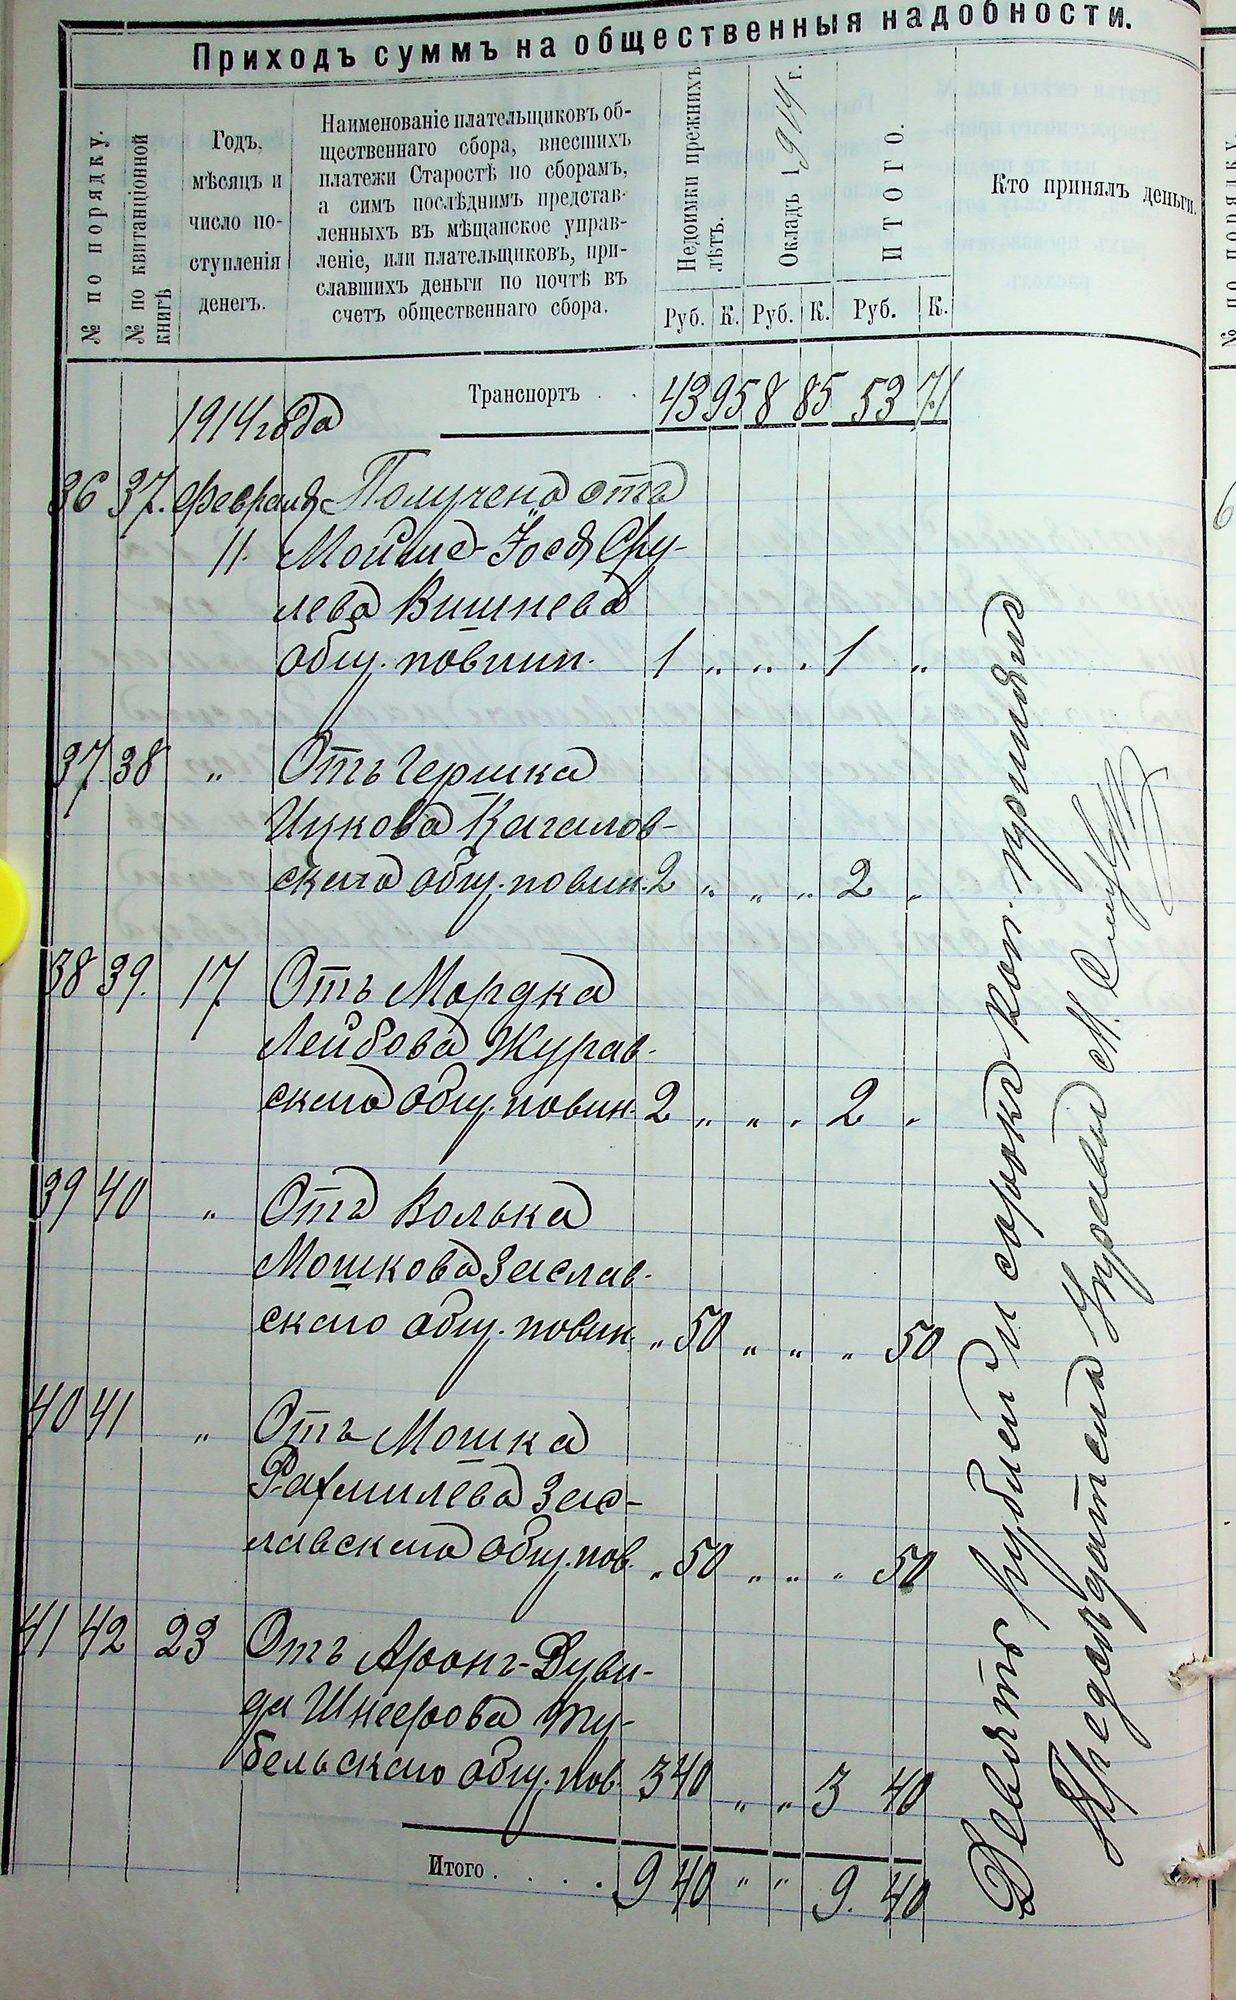 Приходъ суммъ на общественныя надобности.
№ по порядку.
№ по квитанціонной книгѣ
Годъ,
мѣсяцъ и
число по-
ступленія
денегъ.
Наименованіе плательщиковъ об-
щественнаго сбора, внесшихъ
платежи Старостѣ по сборамъ,
а симъ послѣднимъ представ-
ленныхъ въ мѣщанское управ-
леніе, или плательщиковъ, при-
славшихъ деньги по почтѣ въ
счетъ общественнаго сбора.
Недоимки прежнихъ лѣтъ.
Окладъ 1914 г.
ИТОГО.
Кто принялъ деньги.
Руб. К. Руб. К. Руб. К.
Транспортъ . . 43 95 8 85 53 71
1914 года
36 37. Февраля Получено отъ
11. Мойше-Іося Сру-
лева Вишнева
общ. повин. 1 „ „ „ 1 „
37. 38 „ Отъ Гершка
Ицкова Кагалов-
скаго общ. повин. 2 „ „ „ 2 „
38 39. 17 Отъ Мордка
Лейбова Журав-
скаго общ. повин. 2 „ „ „ 2 „
39 40 „ Отъ Волька
Мошкова Заслав-
скаго общ. повин. „ 50 „ „ „ 50
40 41 „ Отъ Мошка
Рахмилева Зас-
лавскаго общ. пов. „ 50 „ „ „ 50
41 42 23 Отъ Аронъ-Дуви-
да Шнеерова Ту-
бельскаго общ. пов. 3 40 „ „ 3 40
Итого . . . . . 9 40 „ „ 9. 40
Девять рублей и сорокъ коп. принялъ
Предсѣдатель Управы М.